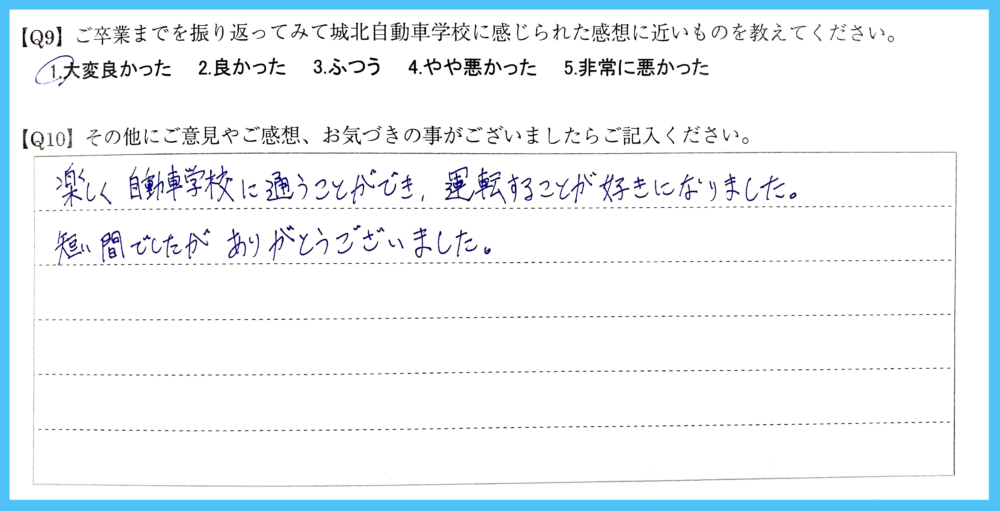 【Q9】ご卒業までを振り返ってみて城北自動車学校に感じられた感想に近いものを教えてください。
1.大変良かった 2.良かった 3.ふつう 4.やや悪かった 5.非常に悪かった
【Q10】その他にご意見やご感想、お気づきの事がございましたらご記入ください。
楽しく自動車学校に通うことができ、運転することが好きになりました。
短い間でしたがありがとうございました。